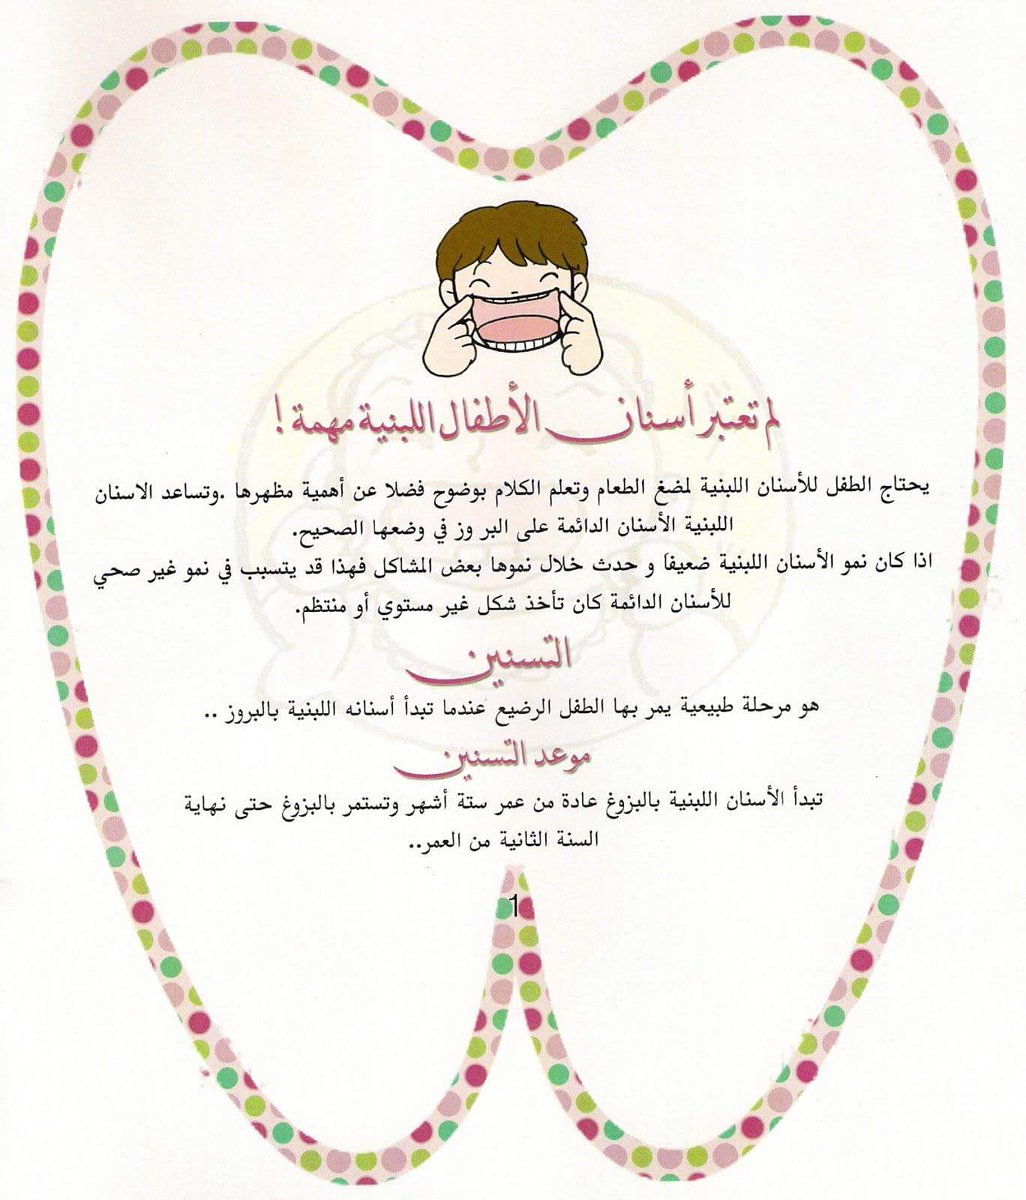 لم تعتبر أسنان الأطفال اللبنية مهمة !
يحتاج الطفل للأسنان اللبنية لمضغ الطعام وتعلم الكلام بوضوح فضلا عن أهمية مظهرها .وتساعد الاسنان
اللبنية الأسنان الدائمة على البر وز في وضعها الصحيح.
اذا كان نمو الأسنان اللبنية ضعيفاَ و حدث خلال نموها بعض المشاكل فهذا قد يتسبب في نمو غير صحي
للأسنان الدائمة كان تأخذ شكل غير مستوي أو منتظم.
التسنين
هو مرحلة طبيعية يمر بها الطفل الرضيع عندما تبدأ أسنانه اللبنية بالبروز ..
موعد التسنين
تبدأ الأسنان اللبنية بالبزوغ عادة من عمر ستة أشهر وتستمر بالبزوغ حتى نهاية
السنة الثانية من العمر..
1